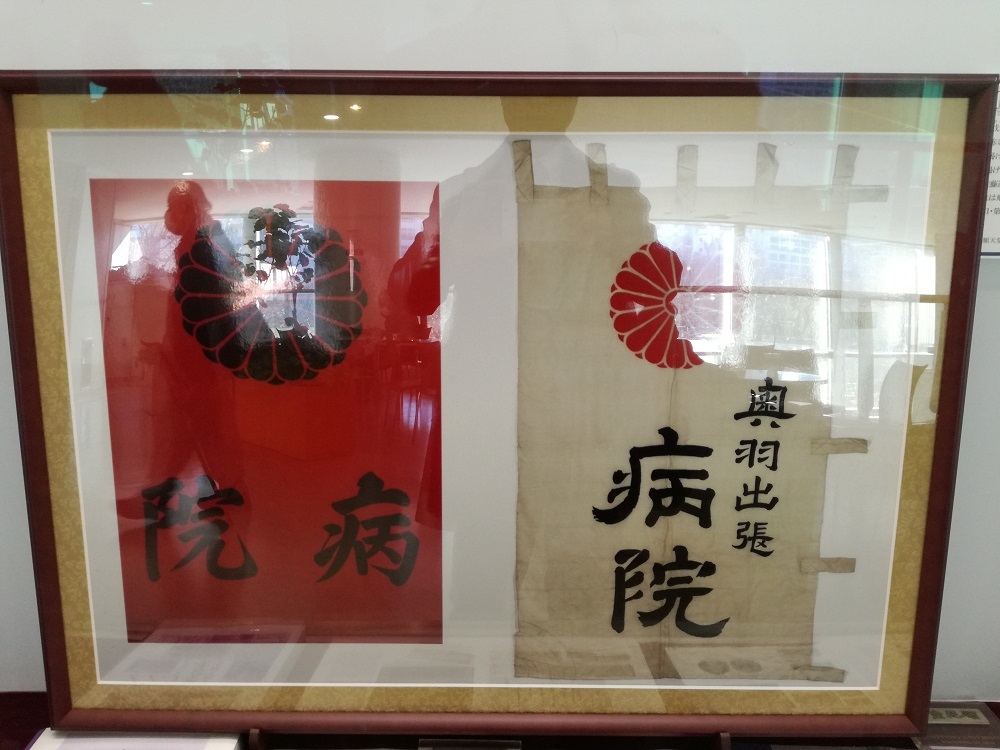 病院
奥羽出張
病院